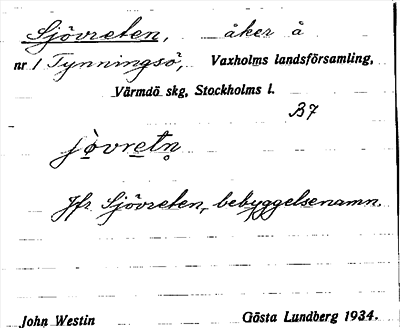 Sjövreten, åker å
nr 1 Tynningsö, Vaxholms landsförsamling,
Värmdö skg, Stockholms l.
B7
jövretn̥
Jfr Sjövreten, bebyggelsenamn.
John Westin Gösta Lundberg 1934.